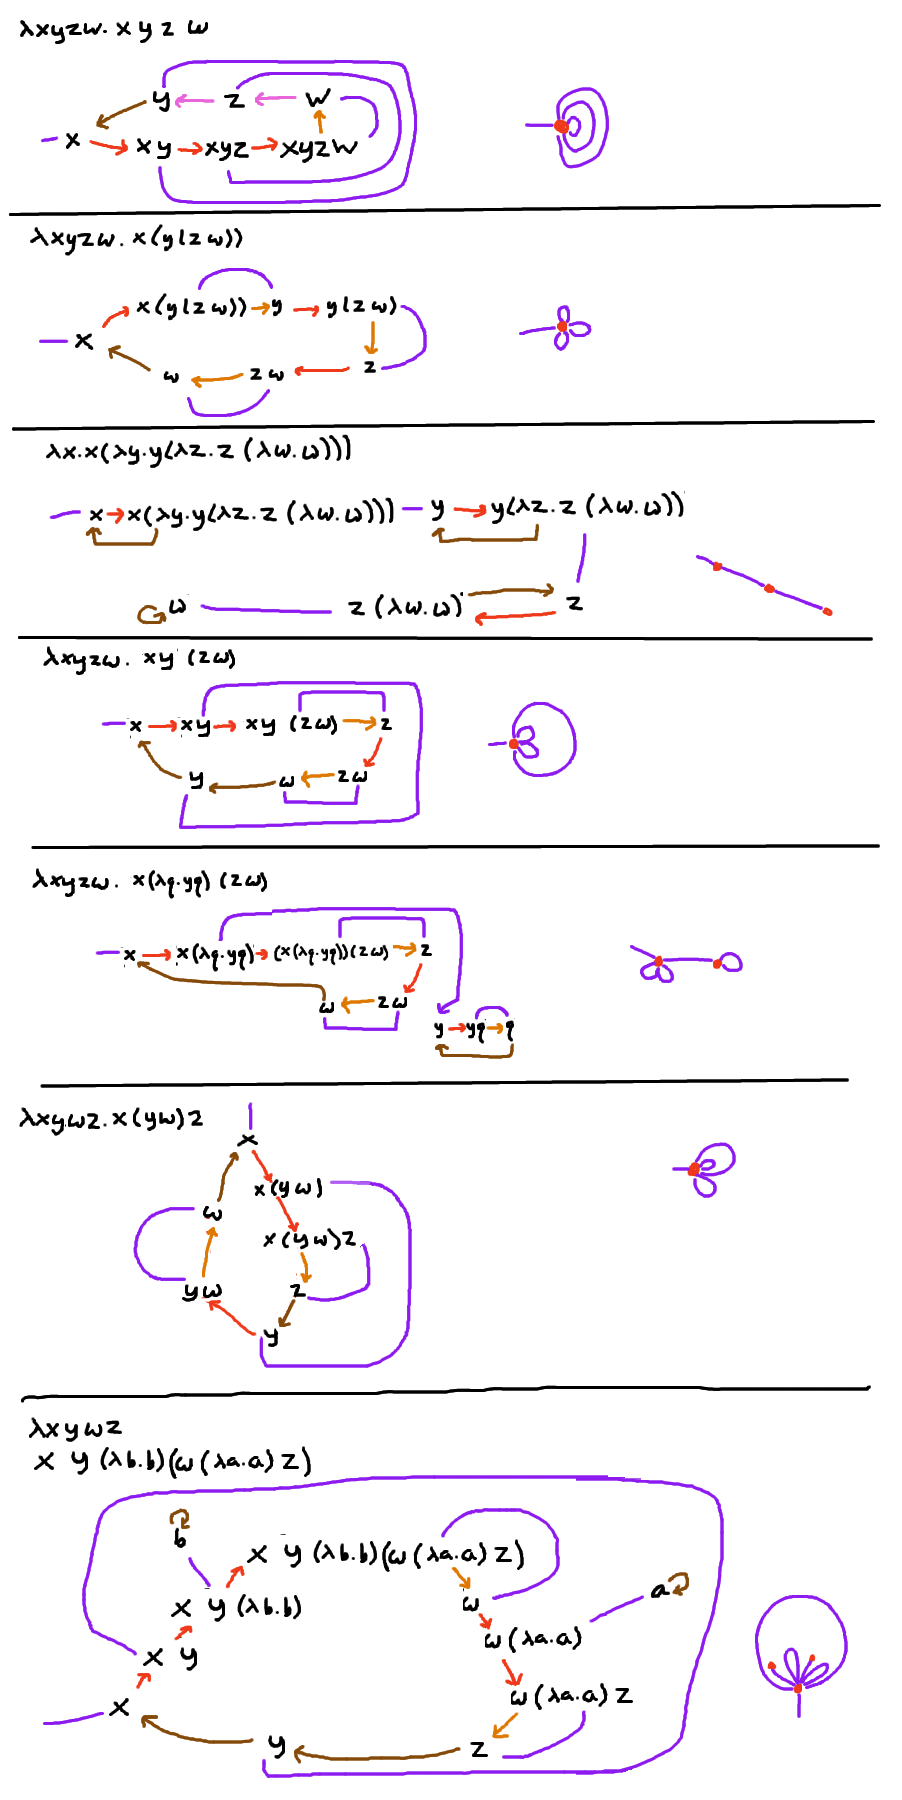 λxyzw. x y z w
y z w
x xy xyz xyzw
λxyzw. x(y(z w))
x(y(z w)) y y(z w)
x
w z w z
λx.x(λy.y(λz.z (λw.w)))
x x(λy.y(λz.z (λw.w))) y y(λz.z (λw.w))
w z (λw.w) z
λxyzw. xy (zw)
x xy xy (zw) z
y w zw
λxyzw. x(λq.yq) (zw)
x x(λq.yq) (x(λq.yq))(zw) z
w zw
y yq q
λxywz. x(yw)z
x
x(yw)
w
x(yw)z
yw z
y
λxywz
x y (λb.b)(w(λa.a) z)
b
x y (λb.b)(w(λa.a) z)
a
x y (λb.b) w
w(λa.a)
x y
w(λa.a) z
x
y z